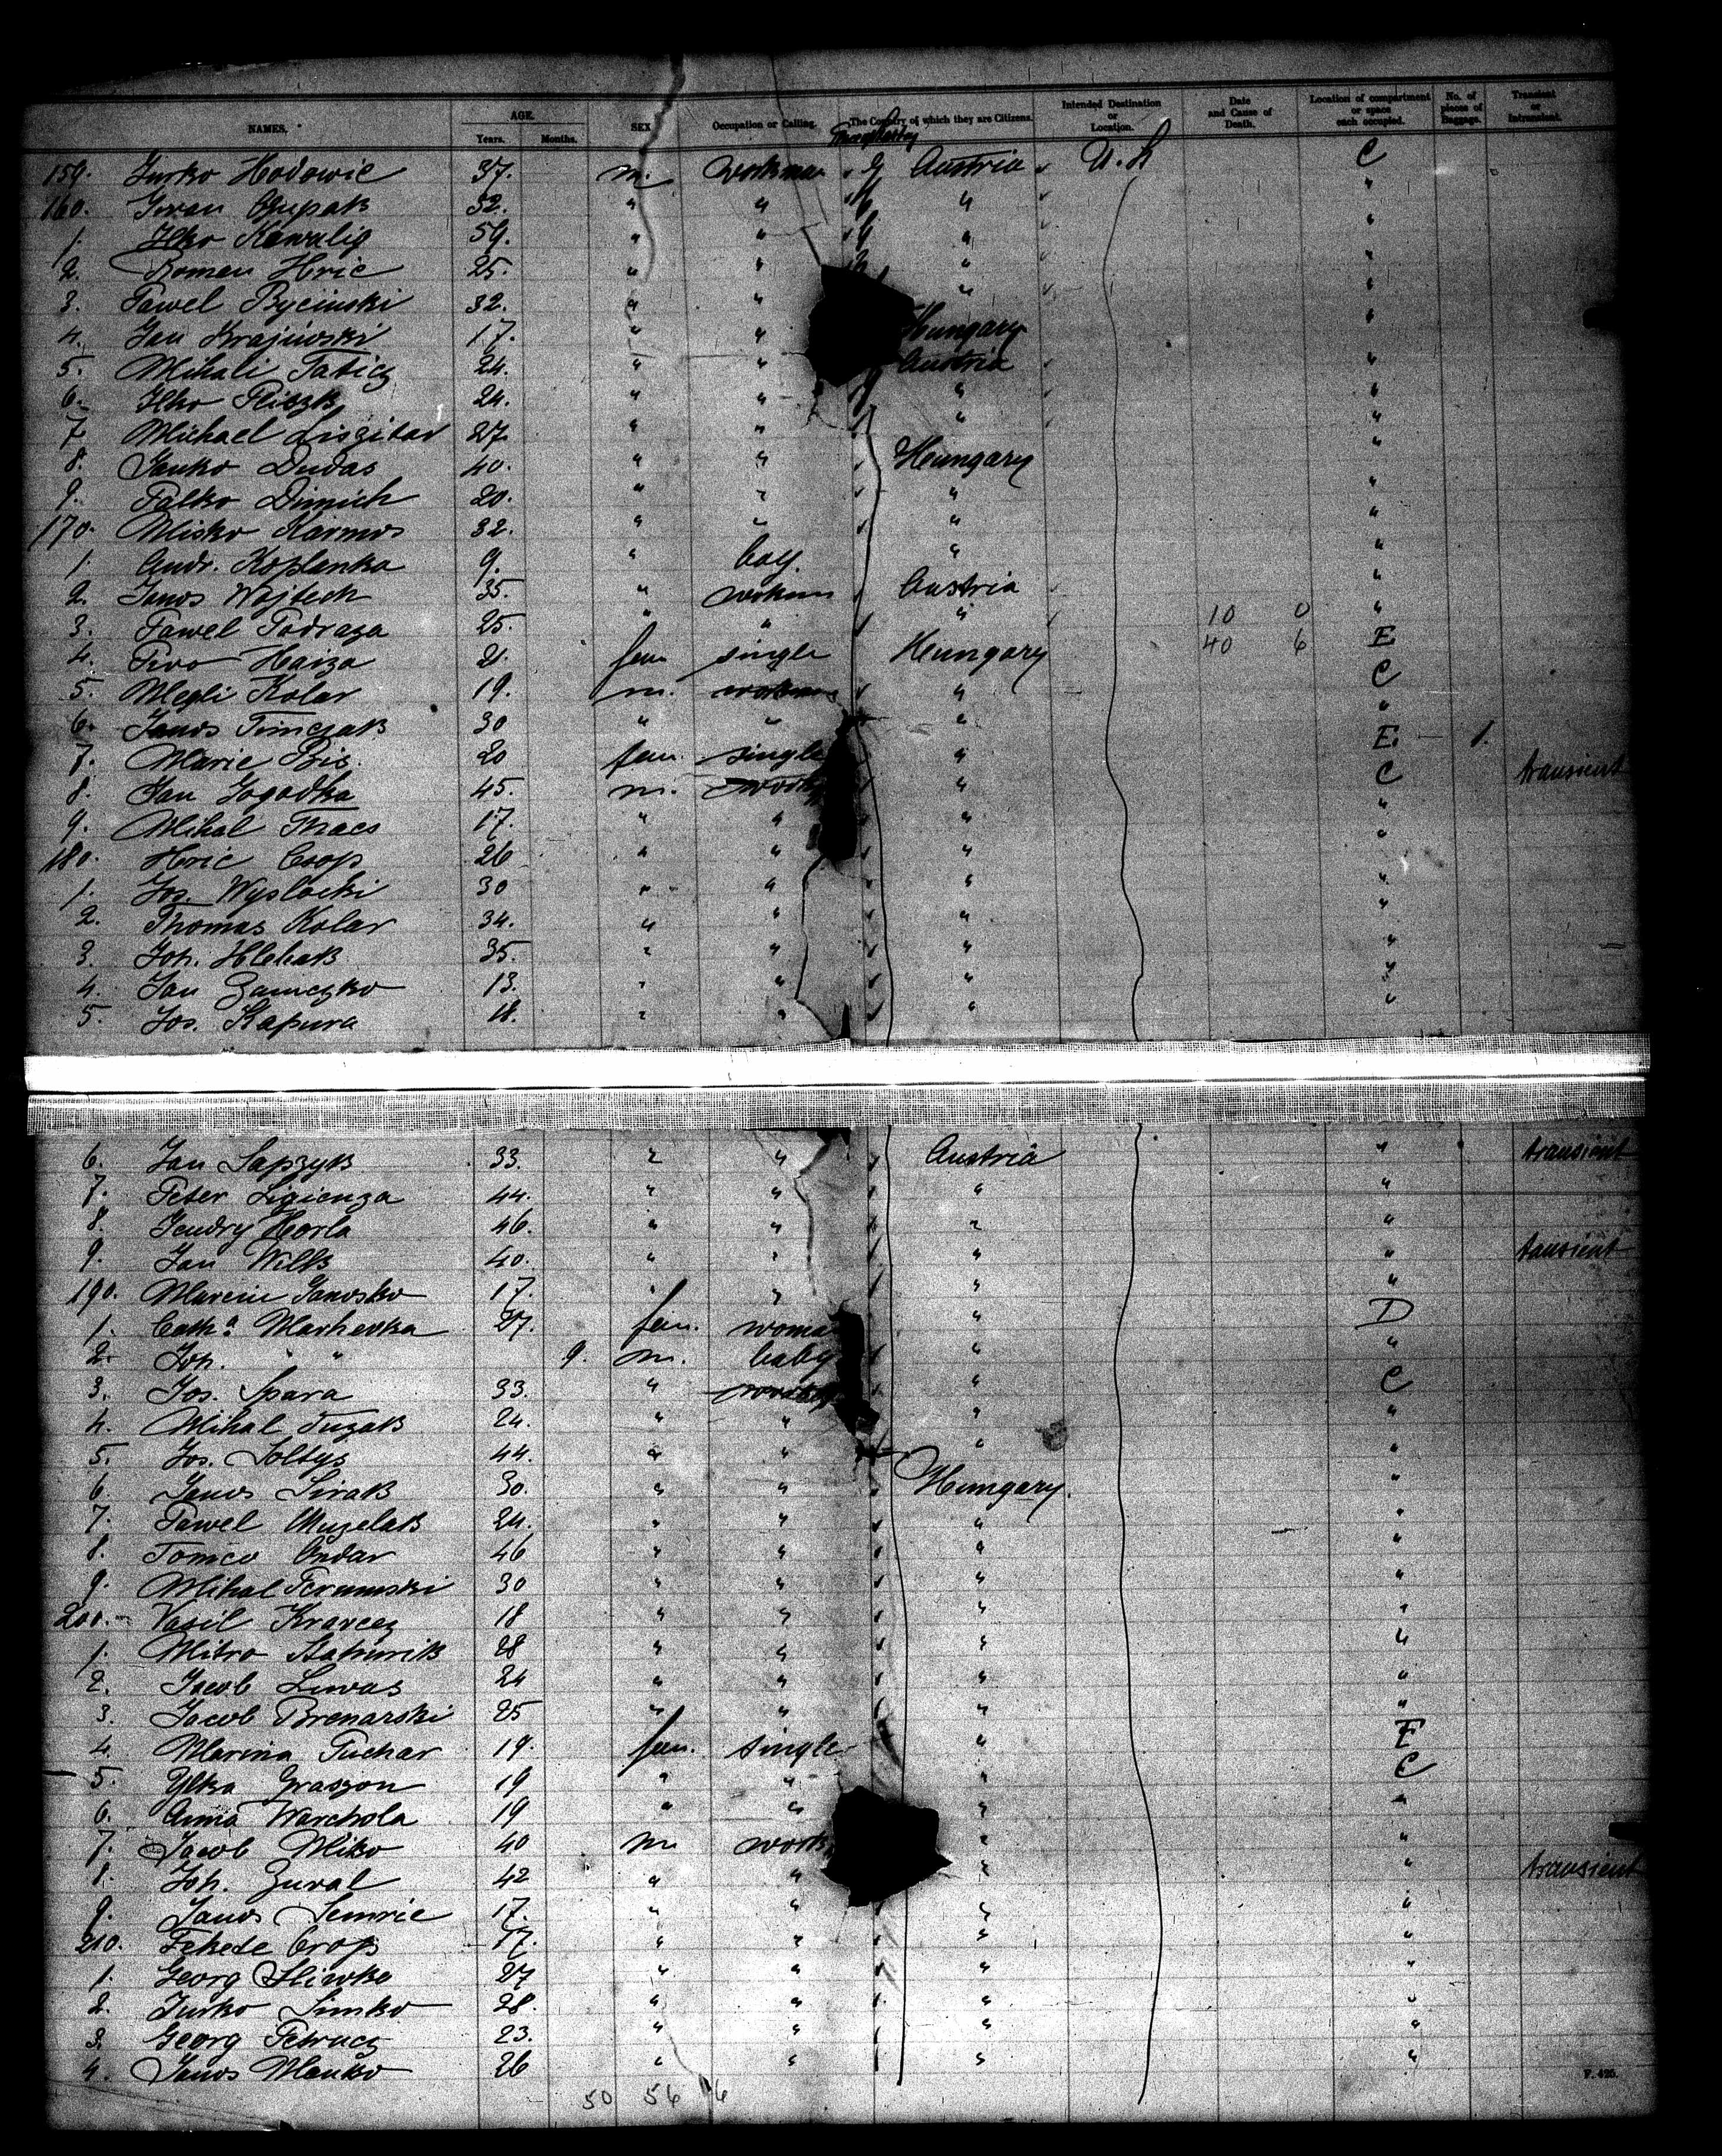 NAMES. AGE. Years. Months. SEX Occupation or Calling. The Country of which they are Citizens. Intended Destination or Location. Date and Cause of Death. Location of compartment or space each occupied. No. of pieces of Baggage. Transient or Intransient.
159. Jurko Hodowic 37. m. workman Austria U. S. C
160. Iwan 32. " " " "
1. Ilko Kowalig 59. " " " "
2. Roman Hric 25. " " " "
3. Pawel Bycinski 32. " " " "
4. Jan Krajewski 17. " " Hungary "
5. Mihali Tabicz 24. " " Austria "
6. Ilko 24. " " " "
7. Michael Liszitar 27. " " " "
8. Janko Duvas 40. " " Hungary "
9. Palko Dimich 20. " " " "
170. Misko Karmos 32. " " " "
1. Andr. Koplanka 9. " boy. " "
2. Janos Wojtech 35. " workman Austria "
3. Pawel Podraza 25. " " " 10 0 "
4. Haiza 21. fem single Hungary 40 6 E
5. Kolar 19. m. workman " C
6. Janos Timczak 30 " " " "
7. Marie Bis. 20 fem. single " E. 1.
8. Jan Jagodka 45. m. " C transient
9. Mihal Tkacs 17. " " " "
180. Hric Csop 26 " " " "
1. Jos. Wyslocki 30 " " " "
2. Thomas Kolar 34. " " " "
3. Joh. Hlehak 35. " " " "
4. Jan Zamczko 13. " " " "
5. Jos. Kapura 18. " " " "
6. Jan Sapzyk 33. " " Austria " transient
7. Peter Ligienza 44. " " " "
8. Jendry Horla 46. " " " "
9. Jan Wilk 40. " " " " tansient
190. Marcin Janosko 17. " " " "
1. Cath.a Marhevka 27. fem. woman " D
2. Joh. " " 9. m. baby " "
3. Jos. Spara 33. " " C
4. Mihal Tuzak 24. " " " "
5. Jos. Soltys 44. " " " "
6. Janos Sirak 30. " " Hungary. "
7. Pawel Muzelak 24. " " " "
8. Tomco Ondar 46 " " " "
9. Mihal 30 " " " "
200. Vasil Kravcz 18 " " " "
1. Mitro 28 " " " "
2. Jacob Luvas 24 " " " "
3. Jacob Brenarski 25 " " " "
4. Marina Puchar 19. fem. single " E
5. Ylka Graszon 19 " " " C
6. Anna Warchola 19 " " " "
7. Jacob Miko 40 m work " "
8. Joh. Zuval 42 " " " " transient
9. Janos Semric 17. " " " "
210. Fekete 17. " " " "
1. Georg Sliwka 27 " " " "
2. Jurko Simko 28. " " " "
3. Georg Petrucz 23. " " " "
4. Janos Manko 26 " " " "
50 56 16
F. 425.